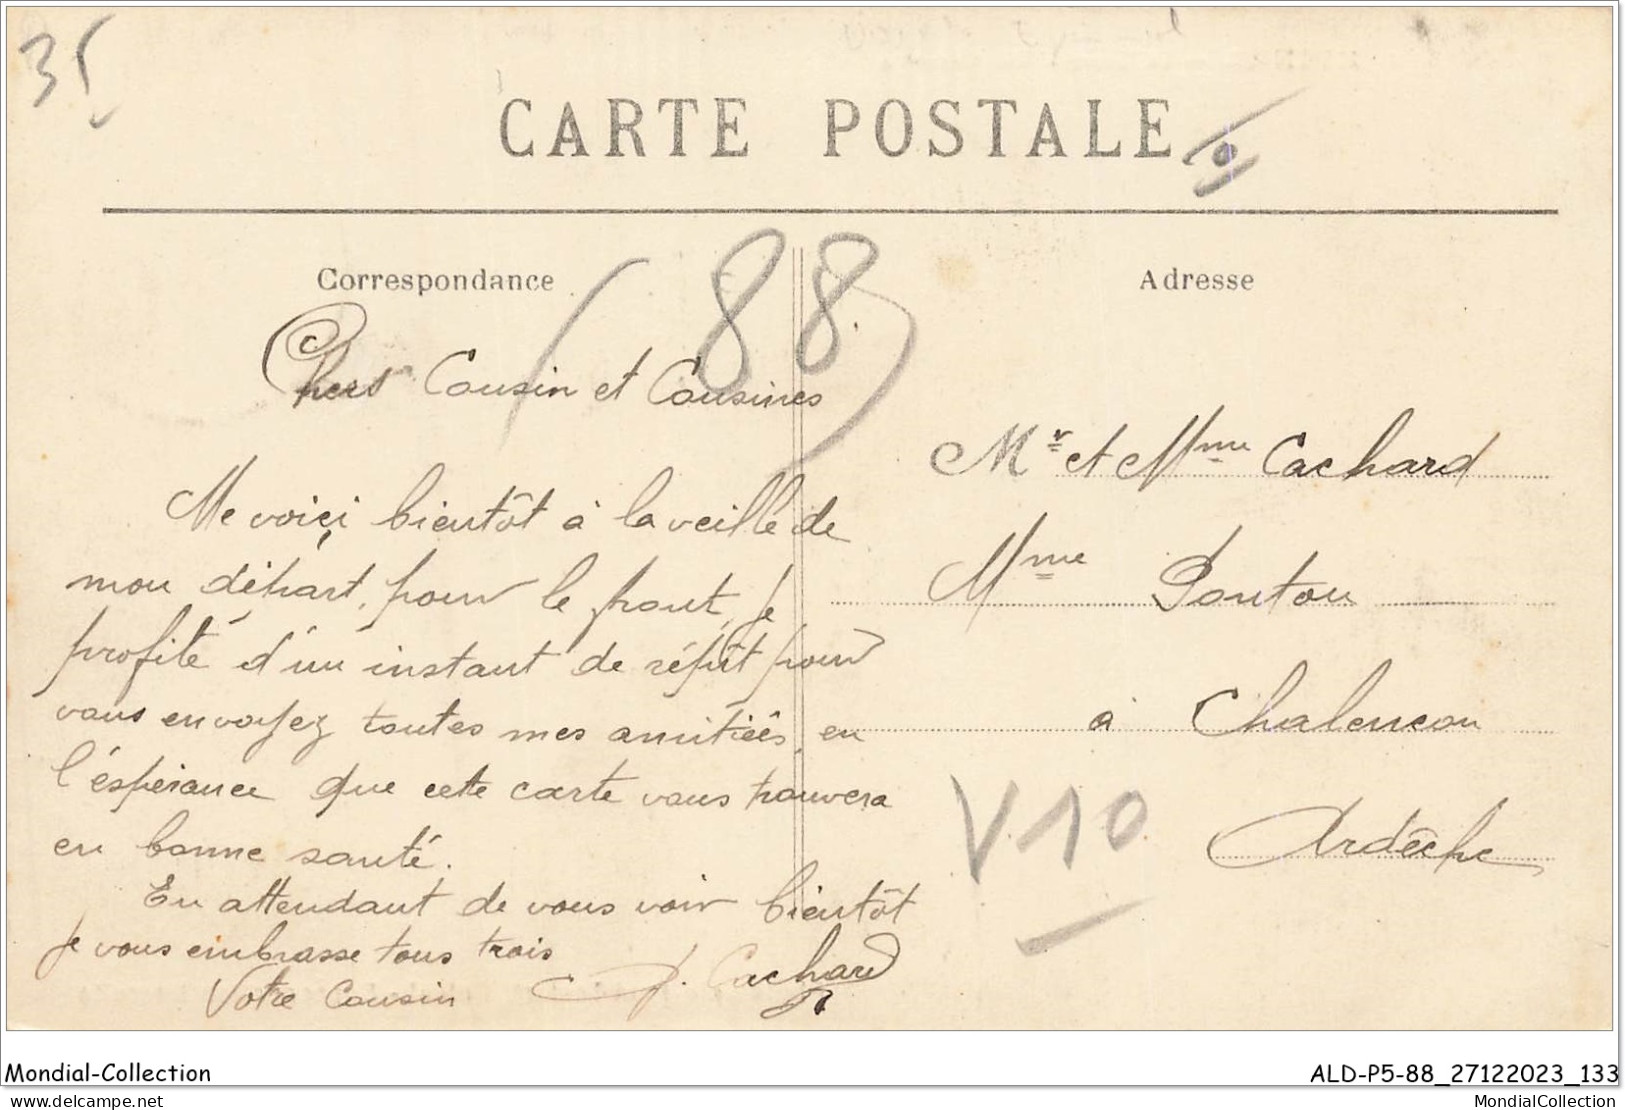 35
CARTE POSTALE
Correspondance
Adresse
(88)
Chers Cousin et Cousines
Me voiçi bientôt à la veille de
mon départ, pour le front, je
profite d'un instant de répît pour
vous envoyez toutes mes amitiées, en
l'éspérance que cette carte vous trouvera
en bonne santé.
En attendant de vous voir bientôt
Je vous embrasse tous trois
Votre Cousin
Cachard
Mr et Mme Cachard
Mme Ponton
à Chalencon
Ardèche
V10
Mondial-Collection
ALD-P5-88_27122023_133
www.delcampe.net
MondialCollection